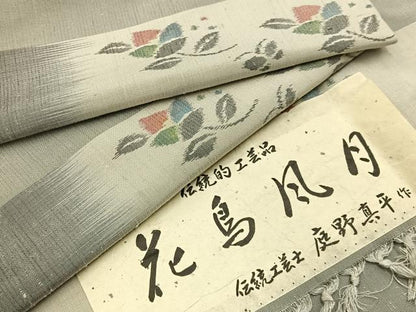 伝統的工芸品
花鳥風月
伝統工芸士 庭野真平 作